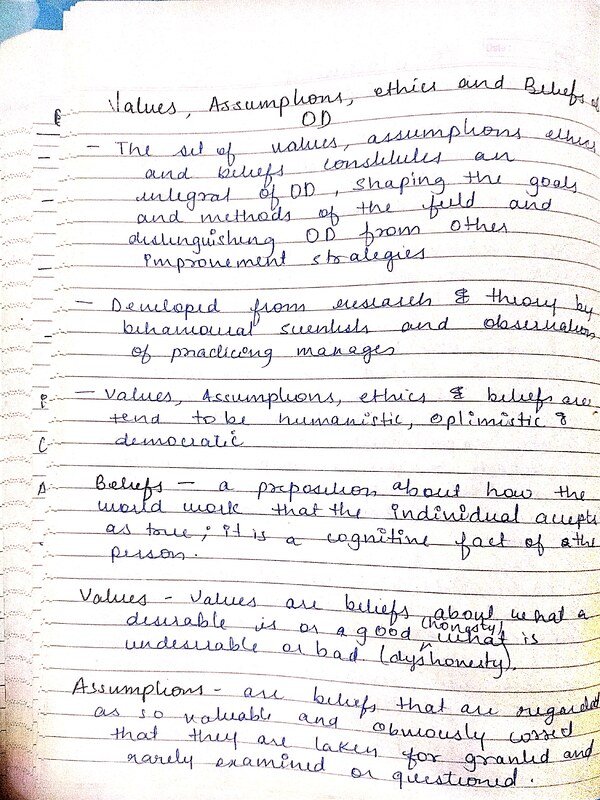 Values, Assumptions, ethics and Beliefs of
OD
- The set of values, assumptions ethics
and beliefs constitutes an
integral of OD, shaping the goals
and methods of the field and
distinguishing OD from other
improvement strategies
- Developed from research & theory by
behavioural scientists and observation
of practicing manages
- Values, Assumptions, ethics & beliefs are
tend to be humanistic, optimistic &
democratic
Beliefs - a preposition about how the
world work that the individual accepts
as true; it is a cognitive fact of the
person.
Values - values are beliefs about what a
desirable is or a good (honesty) what is
undesirable or bad (dyshonesty).
Assumptions - are beliefs that are regarded
as so valuable and obviously correct
that they are taken for granted and
rarely examined or questioned.